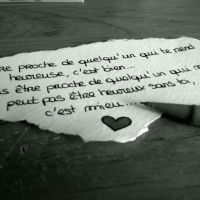 re proche de quelqu'un qui te rend
heureuse, c'est bien...
s être proche de quelqu'un qui n
peut pas être heureux sans toi,
c'est mieu